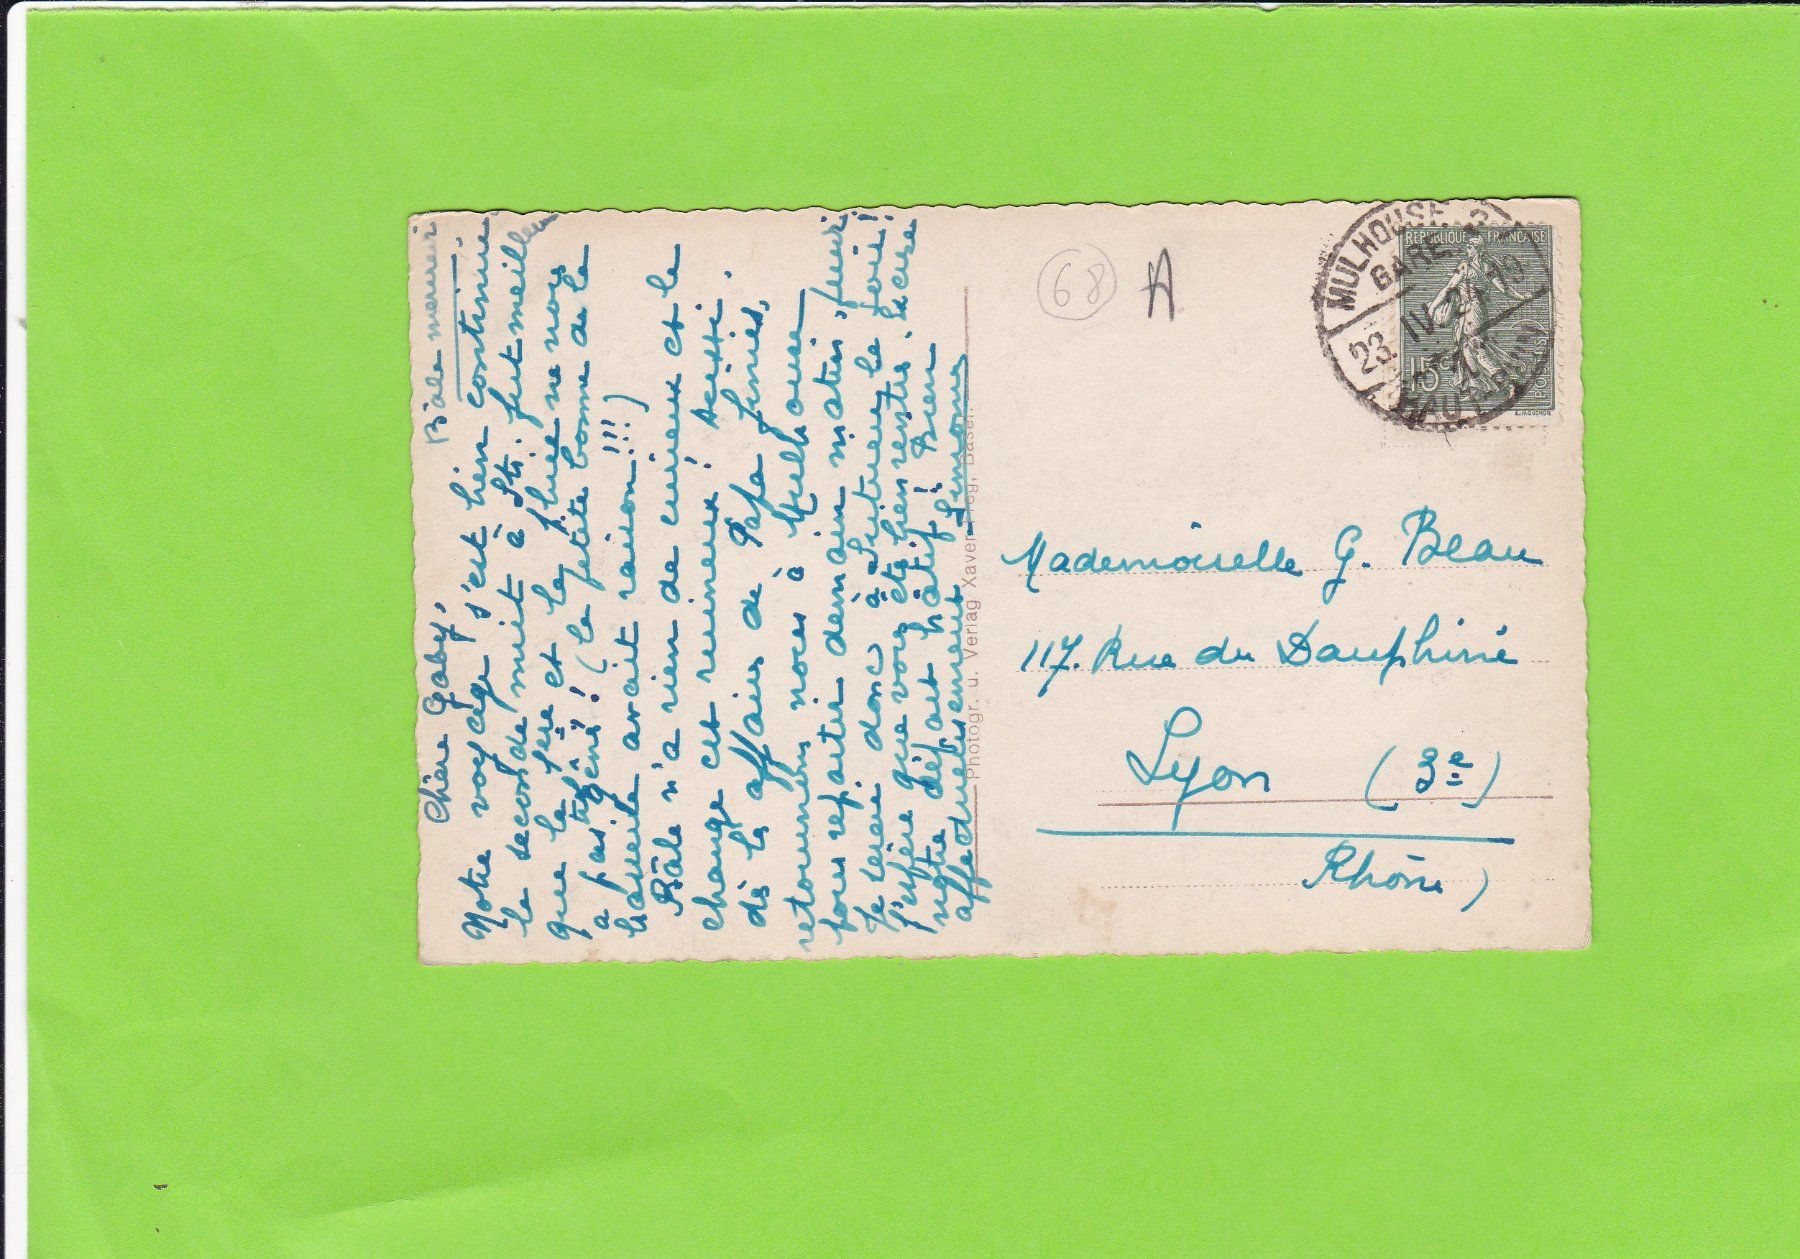 Bâle mercredi
Chère Gaby,
Notre voyage s'est bien continué
la seconde nuit à St. fut meilleure
que la 1ère et la pluie ne nous
a pas gêné! (la petite bonne de la
avait raison!!!)
Bâle n'a rien de curieux et le
change est ruineux! aussi
dès les affaires de Papa finies,
retournons nous à Mulhouse
pour repartir demain matin, jeudi
Je serai donc à le
j'espère que vous êtes bien rentrés.
notre départ hâtif! Bien
affectueusement Simone
Photogr. u. Verlag Xaver Basel.
68
A
MULHOUSE
GARE
23. IV 2
HAUT-RHIN
REPUBLIQUE FRANÇAISE
15c
POSTES
L. MOUCHON
Mademoiselle G. Beau
117. Rue du Dauphiné
Lyon (3e)
Rhône)